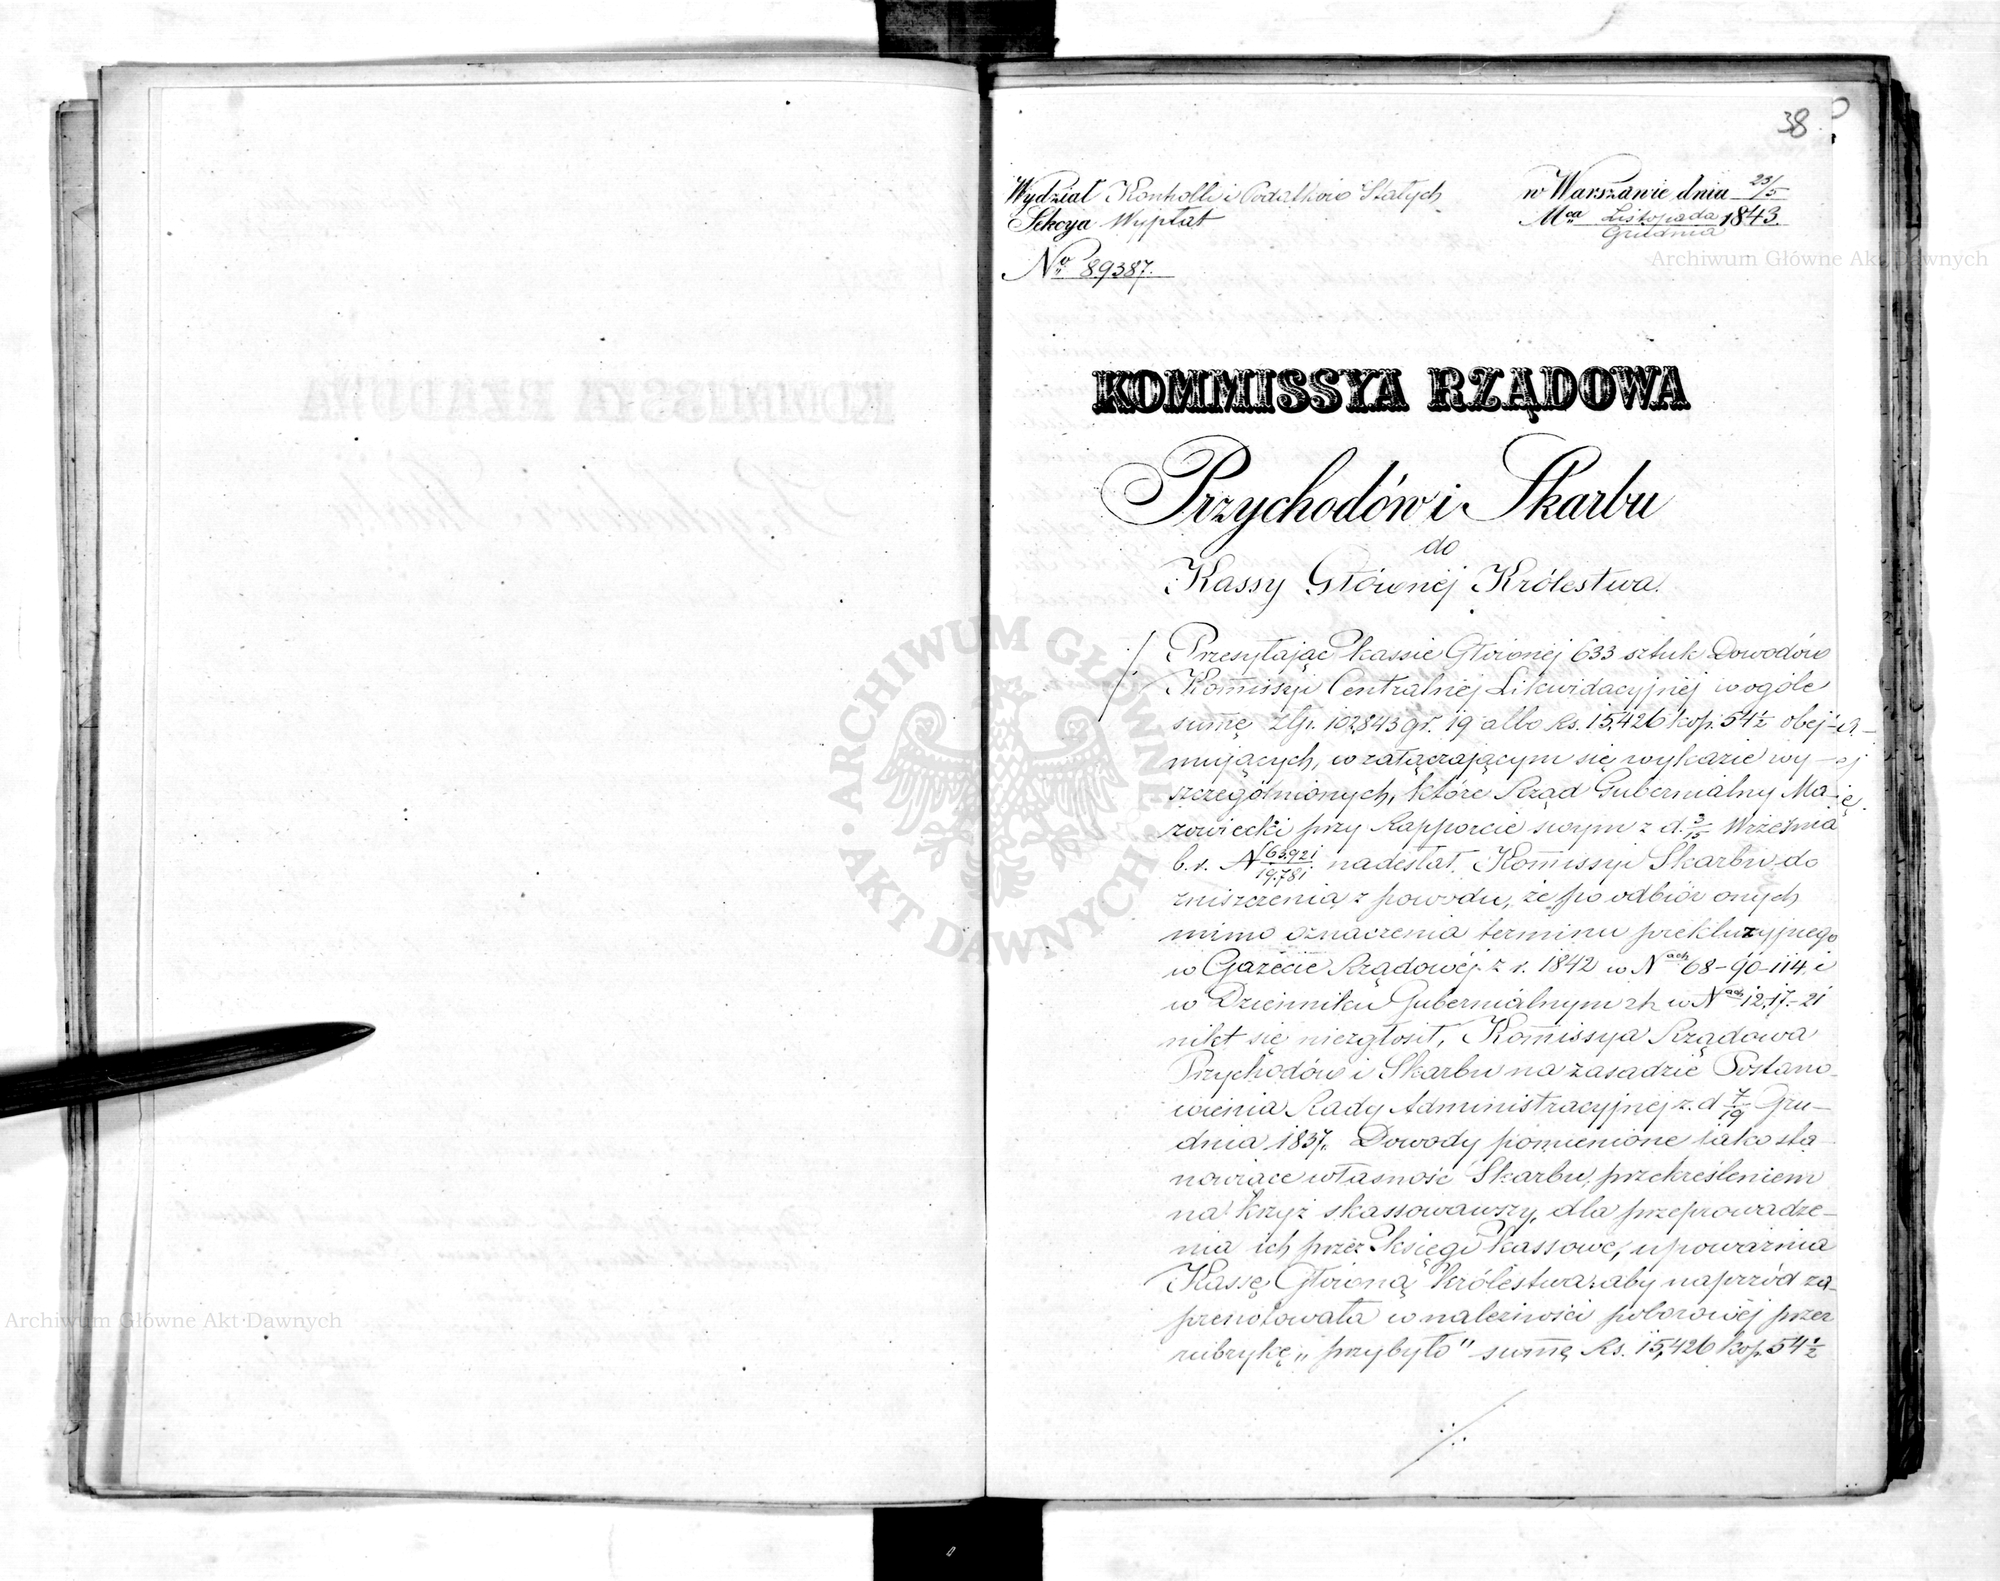 38
Wydział Kontrolli i Podatków Stałych
Sekcya Wypłat
No 89387.
w Warszawie dnia 23/5
Mca Listopada/Grudnia 1843.
KOMMISSYA RZĄDOWA
Przychodów i Skarbu
do
Kassy Głównéj Królestwa.
Przesyłając Kassie Głównéj 633 sztuk Dowodów
Kom̄issyi Centralnéj Likwidacyjnéj w ogóle
sum̄ę złp. 102,843 gr. 19 albo Rs. 15,426 kop. 54 1/2 obej-
mujących, w załączającym się wykazie wy-
szczególnionych, które Rząd Gubernialny Ma-
zowiecki przy Rapporcie swym z d. 3/15 Września
b. r. N 63921/19781 nadesłał Kom̄issyi Skarbu do
zniszczenia z powodu, że po odbiór onych
mimo oznaczenia terminu prekluzyjnego
w Gazecie Rządowéj z r. 1842 w Nach 68-90-114, i
w Dzienniku Gubernialnym zt. w Nach 12,17-21
nikt się niezgłosił, Kom̄issya Rządowa
Przychodów i Skarbu na zasadzie Postano-
wienia Rady Administracyjnéj z d 7/19 Gru-
dnia 1837. Dowody pomienione jako sta-
nowiące własność Skarbu, przekreśleniem
na krzyż skassowawszy, dla przeprowadze-
nia ich przez Księgi Kassowe, upoważnia
Kassę Główną Królestwa, aby naprzód za-
prenotowała w należności poborowéj przez
rubrykę „przybyło" sum̄ę Rs. 15,426 kop. 54 1/2
Archiwum Główne Akt Dawnych
ARCHIWUM GŁÓWNE AKT DAWNYCH
Archiwum Główne Akt Dawnych